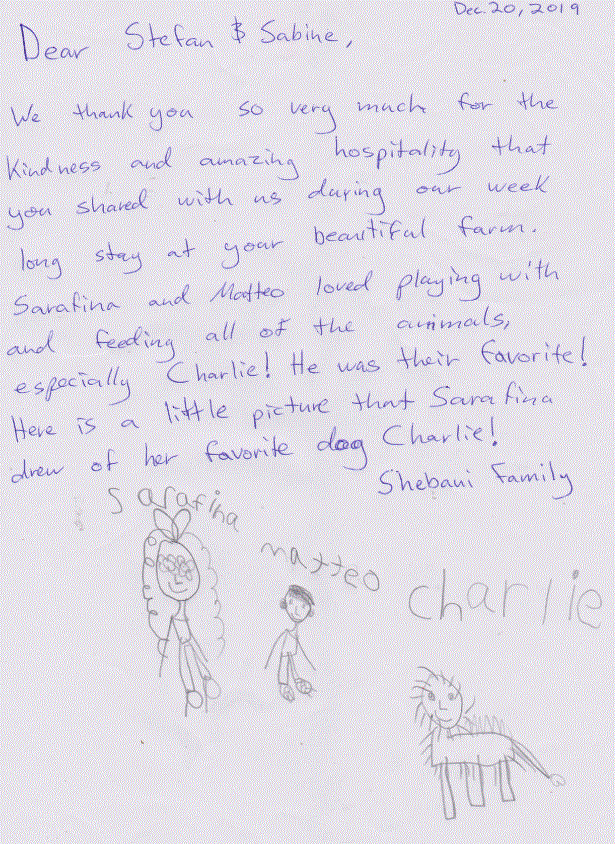 Dec. 20, 2019
Dear Stefan & Sabine,
We thank you so very much for the
kindness and amazing hospitality that
you shared with us during our week
long stay at your beautiful farm.
Sarafina and Matteo loved playing with
and feeding all of the animals,
especially Charlie! He was their favorite!
Here is a little picture that Sarafina
drew of her favorite dog Charlie!
Shebani Family
Sarafina
matteo
Charlie